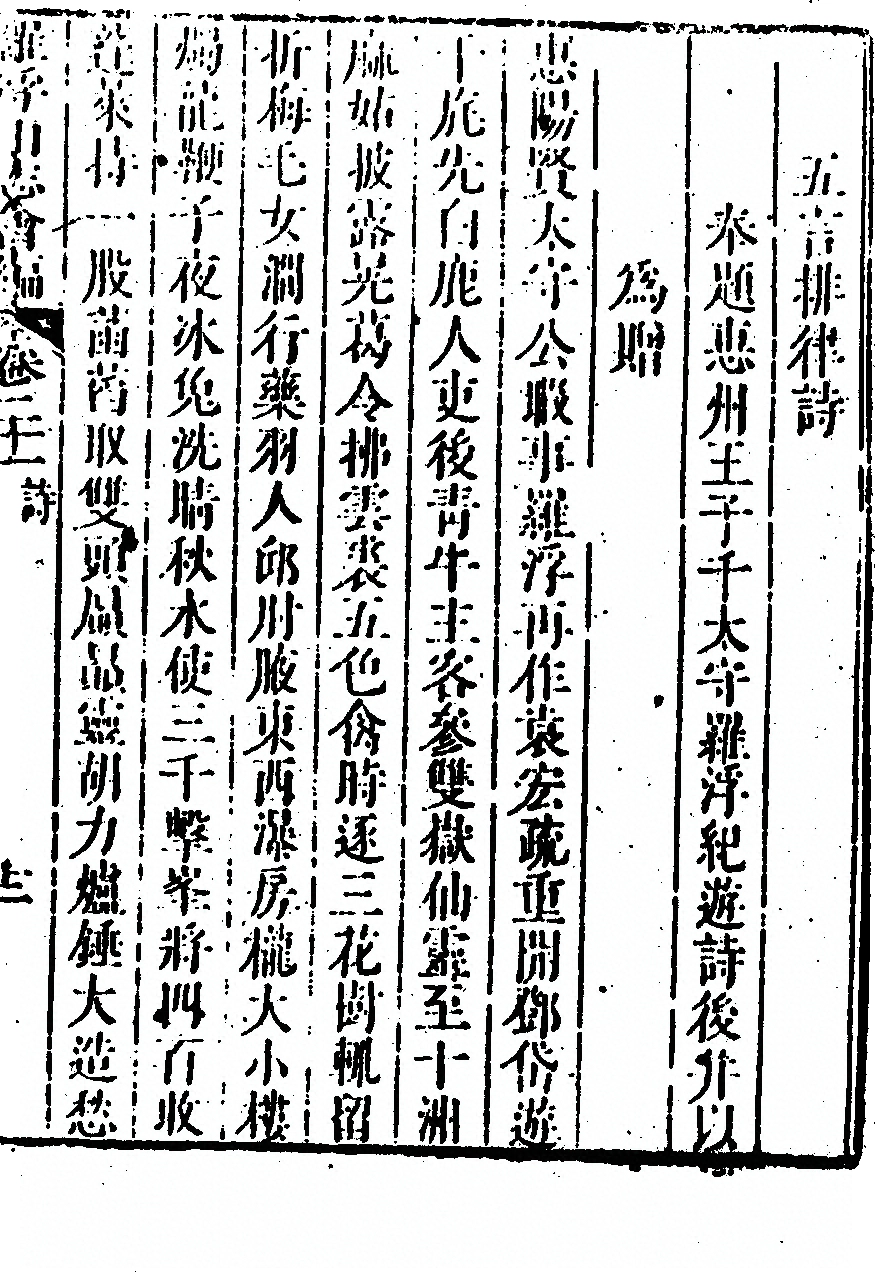 五言排律詩
奉題惠州王子千太守羅浮紀遊詩後并以
為贈
惠陽賢太守公暇事羅浮再作袁宏疏重開鄧岱遊
干旄先白鹿人吏後青牛主客參雙嶽仙靈至十洲
麻姑披露冕葛令拂雲裘五色禽時逐三花樹輒留
折梅毛女澗行藥羽人邱肘腋東西瀑房櫳大小樓
燭龍鞭子夜冰兔洗晴秋水使三千擊峯將四百收
蓬萊持一股菡萏取雙頭屭贔靈胡力爐錘大造愁
羅浮山志會編 卷二十一 詩 七